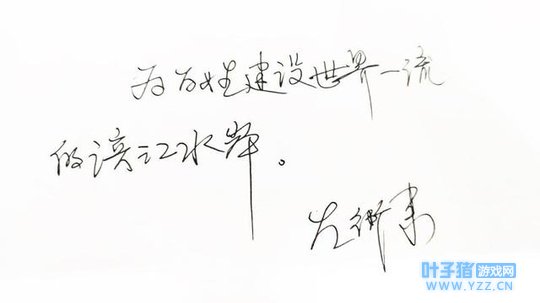 为百姓建设世界一流
的滨江水岸。
叶子猪游戏网
www.YZZ.CN